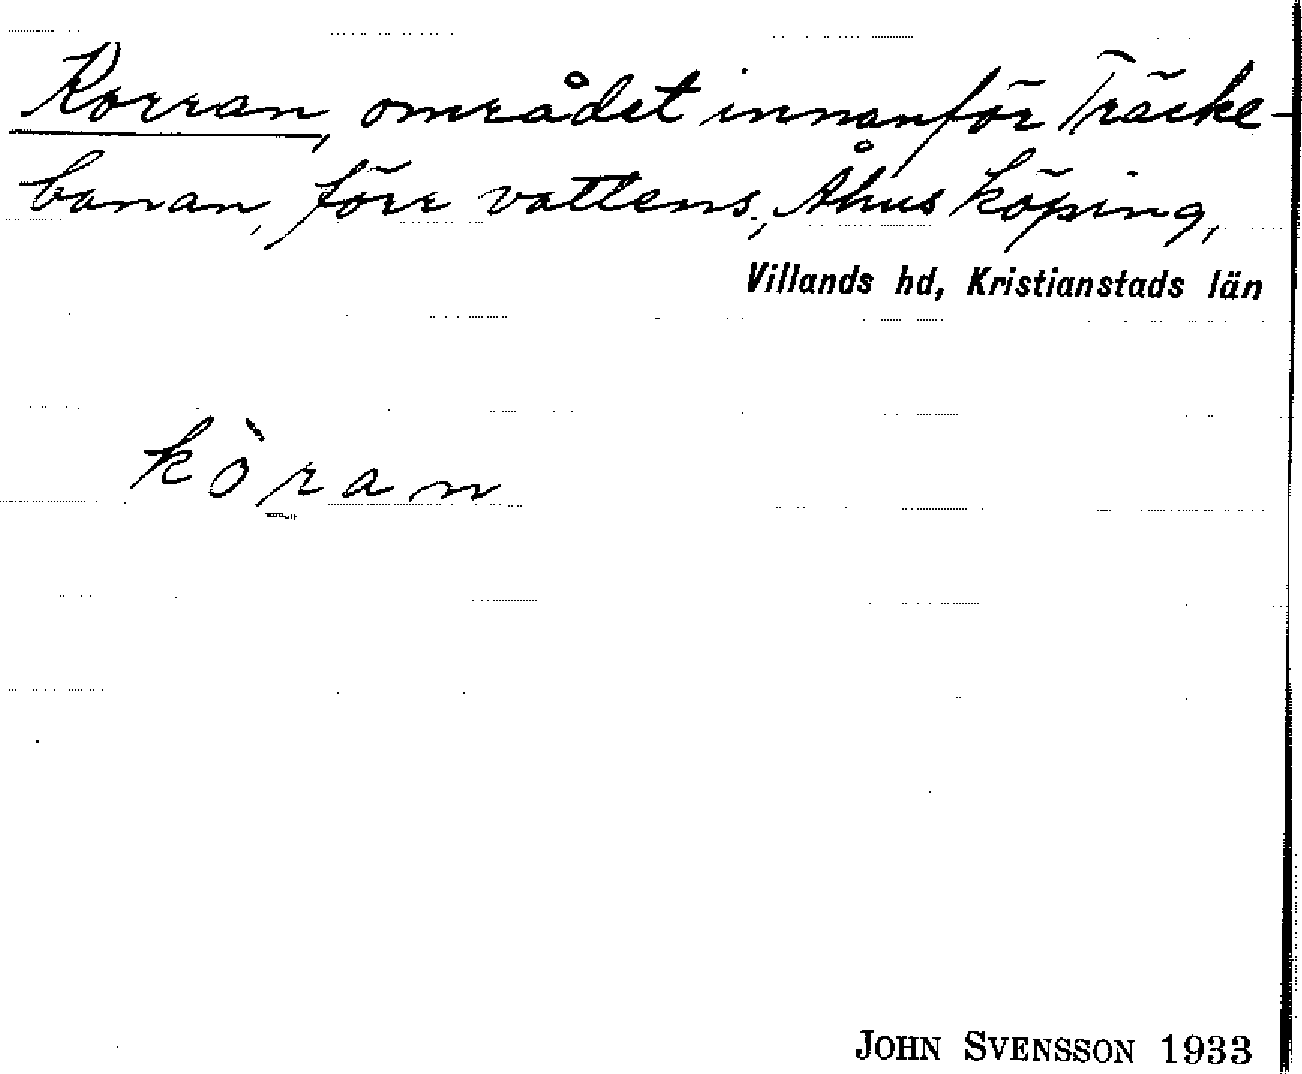 Korran, området innanför Träcke-
banan, förr vattens., Åhus köping,
Villands hd, Kristianstads län
kòran
JOHN SVENSSON 1933